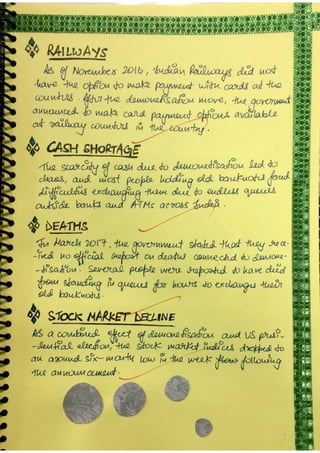 RAILWAYS
As of November 2016, Indian Railways did not
have the option to make payment with cards at the
counters. After the demonetisation move, the government
announced to make card payment options available
at railway counters in the country.
CASH SHORTAGE
The scarcity of cash due to demonetisation led to
chaos, and most people holding old banknotes faced
difficulties exchanging them due to endless queues
outside banks and ATMs across India.
DEATHS
In March 2017, the government stated that they rece-
-ived no official report on deaths connected to demone-
-tisation. Several people were reported to have died
from standing in queues for hours to exchange their
old banknotes.
STOCK MARKET DECLINE
As a combined effect of demonetisation and US presi-
-dential election, the stock market indices dropped to
an around six-month low in the week following
the announcement.